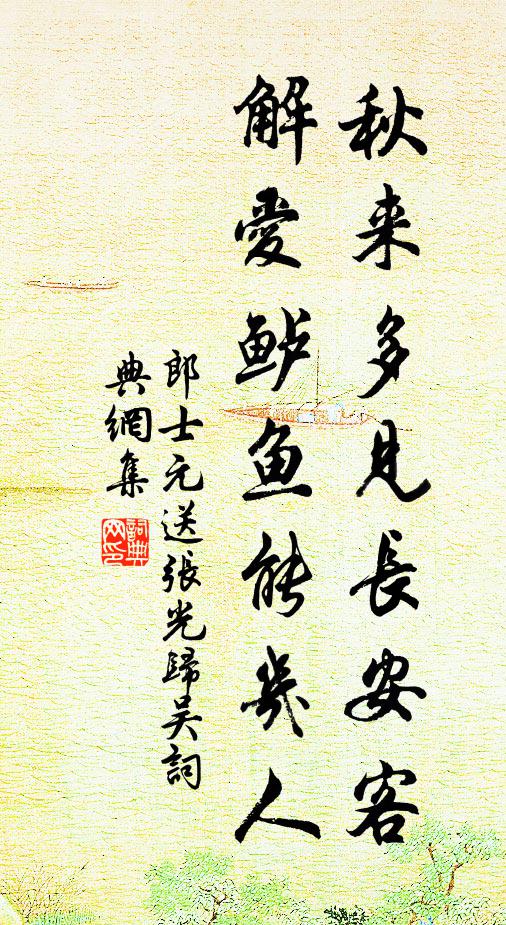 秋来多見長安客
解愛鲈鱼能幾人
郎士元送張光歸吴詞
典網集
詞典網印